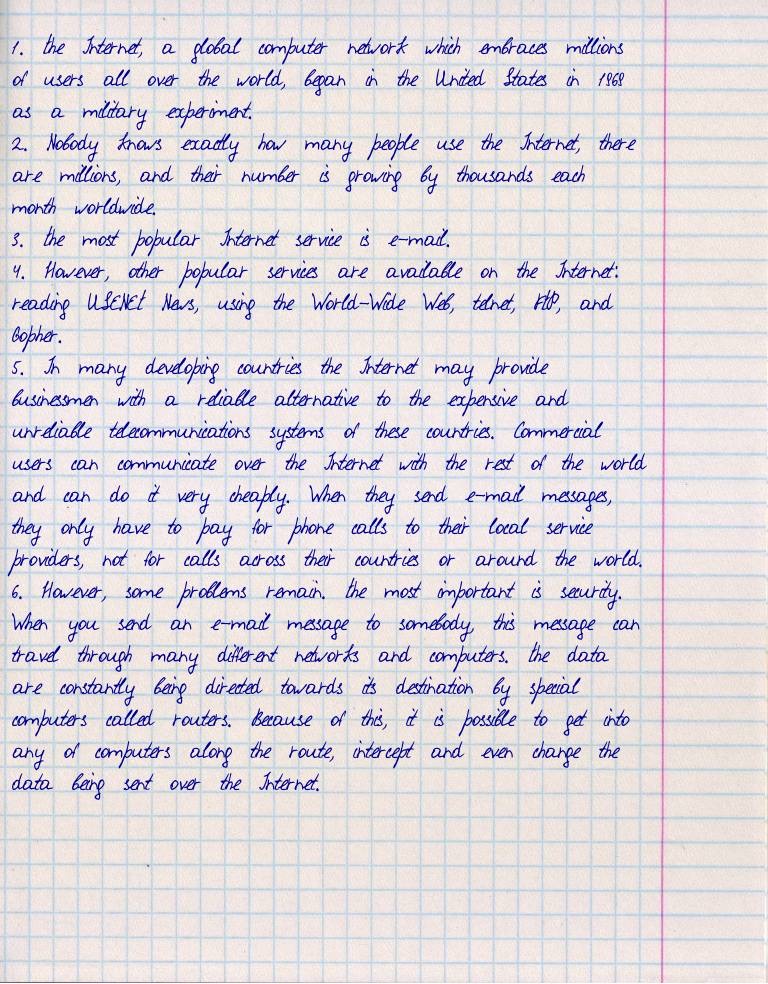 1. The Internet, a global computer network which embraces millions
of users all over the world, began in the United States in 1969
as a military experiment.
2. Nobody knows exactly how many people use the Internet, there
are millions, and their number is growing by thousands each
month worldwide.
3. The most popular Internet service is e-mail.
4. However, other popular services are available on the Internet:
reading USENET News, using the World-Wide Web, telnet, FTP, and
Gopher.
5. In many developing countries the Internet may provide
businessmen with a reliable alternative to the expensive and
unreliable telecommunications systems of these countries. Commercial
users can communicate over the Internet with the rest of the world
and can do it very cheaply. When they send e-mail messages,
they only have to pay for phone calls to their local service
providers, not for calls across their countries or around the world.
6. However, some problems remain. The most important is security.
When you send an e-mail message to somebody, this message can
travel through many different networks and computers. The data
are constantly being directed towards its destination by special
computers called routers. Because of this, it is possible to get into
any of computers along the route, intercept and even change the
data being sent over the Internet.